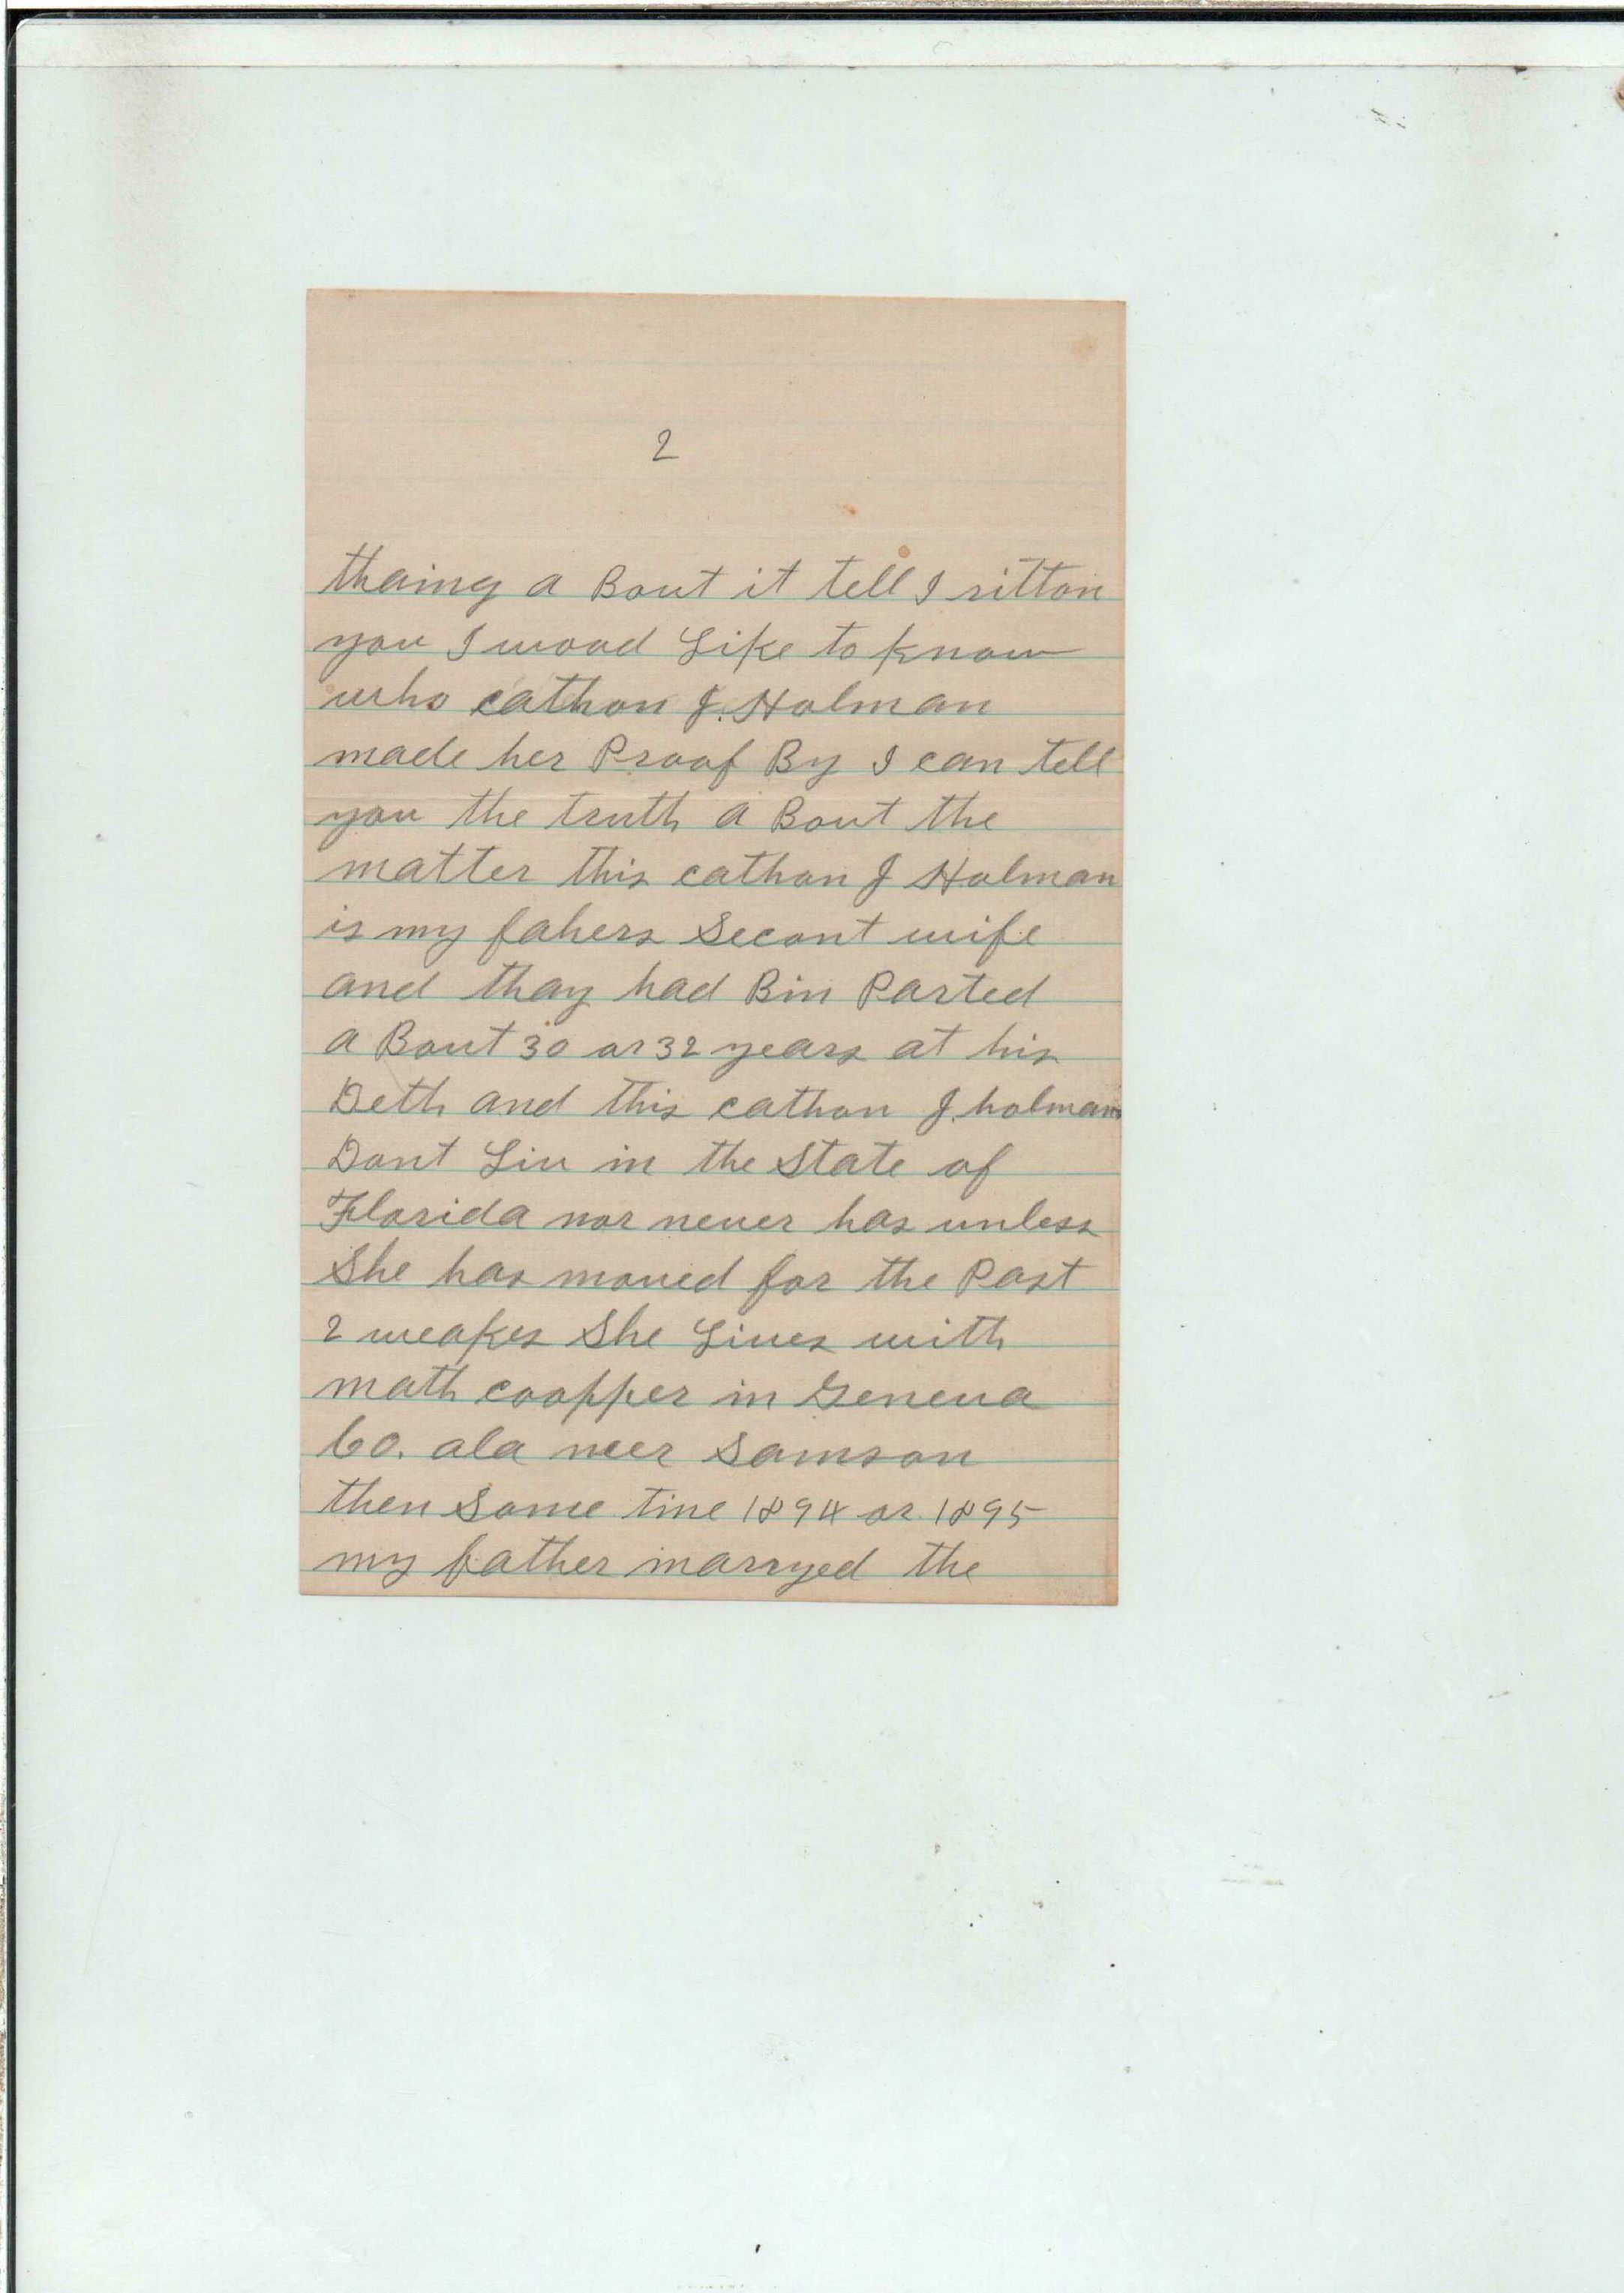 2
thaing a Bout it tell I ritton
you I wood Like to know
who cathon J. Holman
made her Proof By I can tell
you the truth a Bout the
matter this cathon J Holman
is my fahers Secont wife
and thay had Bin Parted
a Bout 30 or 32 years at his
Deth and this cathon J. holman
Dont Liv in the State of
Florida nor never has unless
She has moved for the Past
2 weakes She Lives with
math coopper in Geneva
Co. ala neer Samson
then Some tine 1894 or 1895
my father marryed the